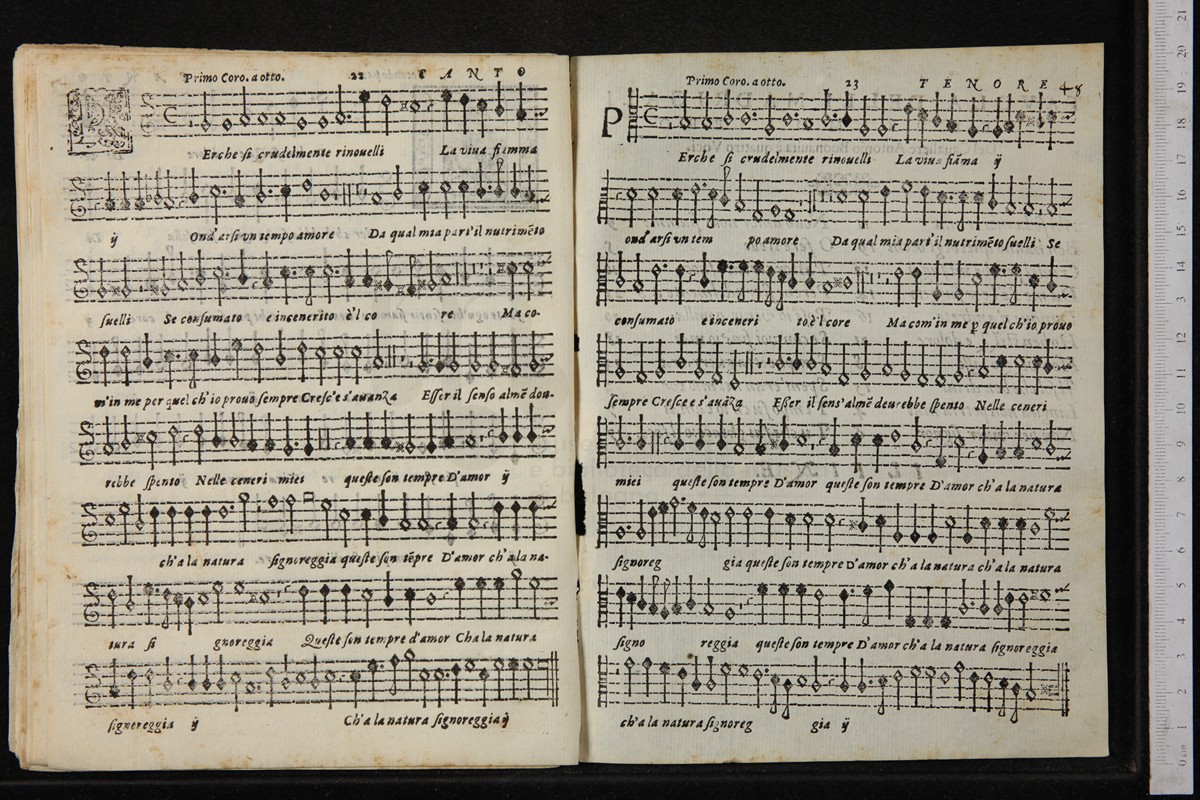 Primo Coro. a otto. 22 CANTO
P
Erche si crudelmente rinouelli La viua fiamma
ij Ond'arsi vn tempo amore Da qual mia part'il nutrimẽto
suelli Se consumato e incenerito è'l co re Ma co-
m'in me per quel ch'io prouo sempre Cresc'e s'auanza Esser il senso almẽ dou-
rebbe spento Nelle ceneri miei queste son tempre D'amor ij
ch'a la natura signoreggia queste son tẽpre D'amor ch'a la na-
tura si gnoreggia Queste son tempre d'amor Cha la natura
signereggia ij Ch'a la natura signoreggia ij
Primo Coro. a otto. 23 TENORE 48
P
Erche si crudelmente rinouelli La viua fiãma ij
ond'arsi vn tem po amore Da qual mia part'il nutrimẽto suelli Se
consumato e inceneri to è'l core Ma com'in me ꝑ quel ch'io prouo
sempre Cresce e s'auãza Esser il sens'almẽ deurebbe spento Nelle ceneri
miei queste son tempre D'amor queste son tempre D'amor ch'a la natura
signoreg gia queste son tempre D'amor ch'a la natura ch'a la natura
signo reggia queste son tempre D'amor ch'a la natura signoreggia
ch'a la natura signoreg gia ij
0 cm 1 2 3 4 5 6 7 8 9 10 11 12 13 14 15 16 17 18 19 20 21